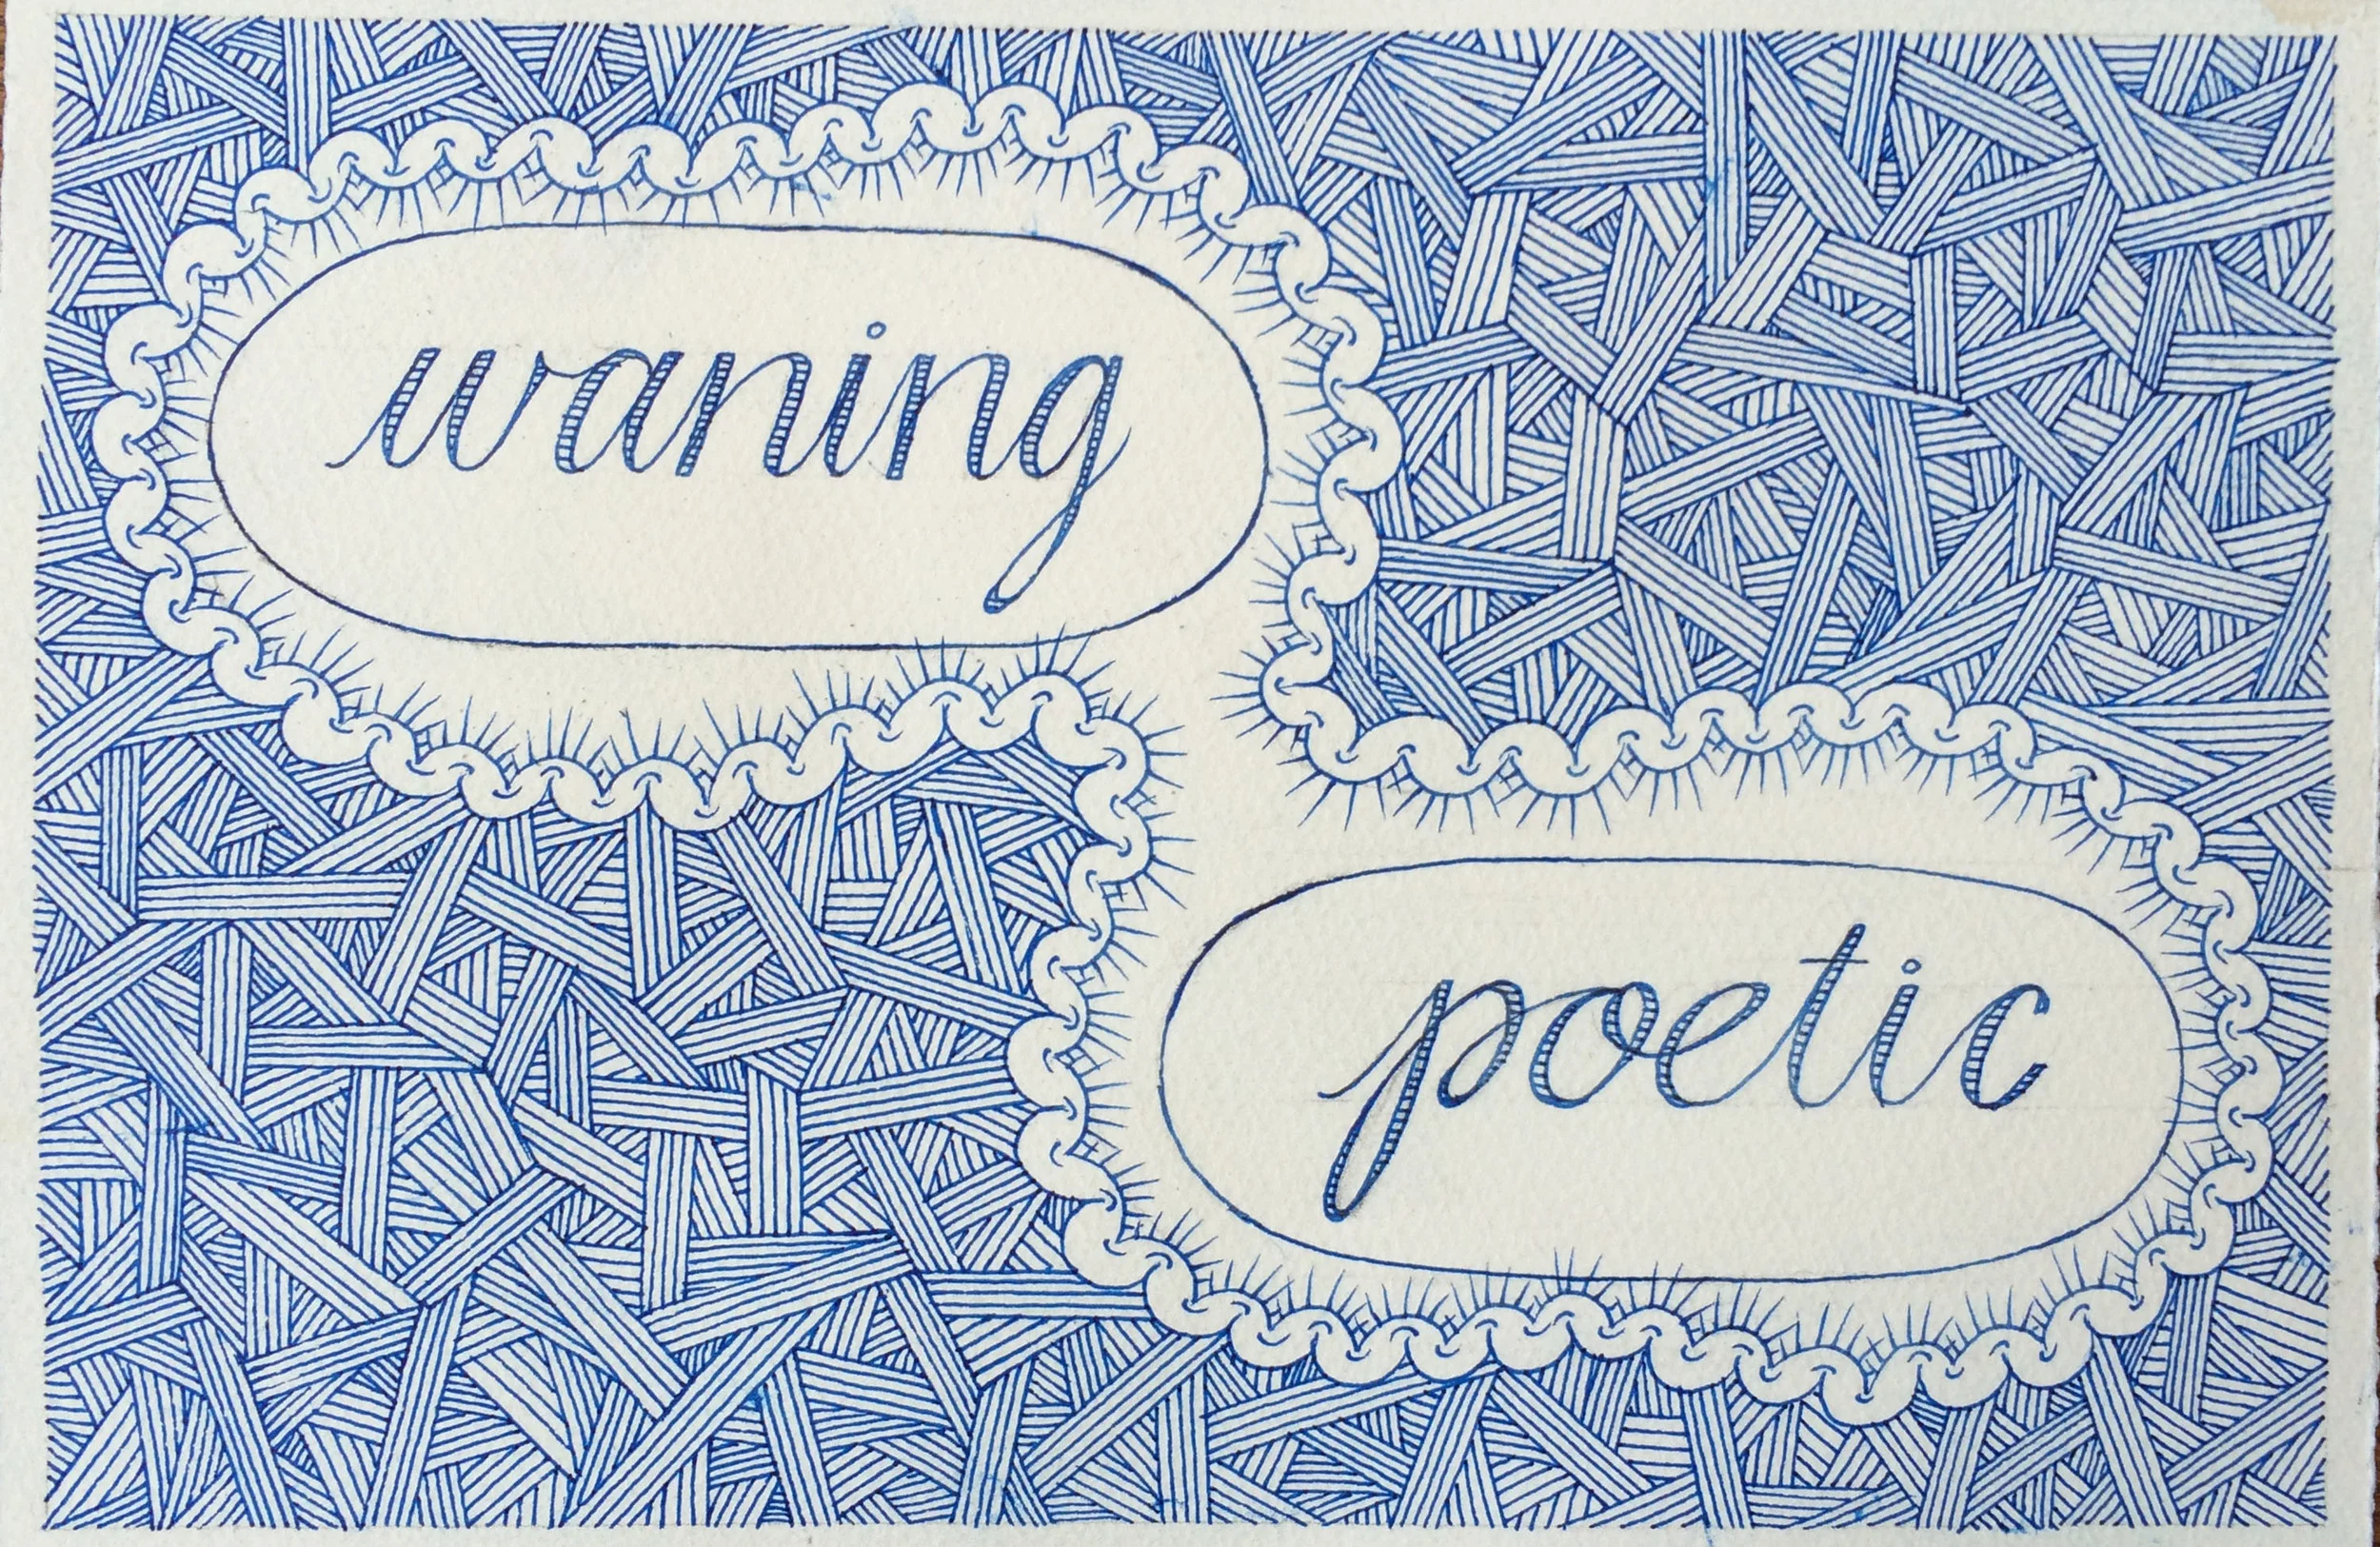 waning
poetic